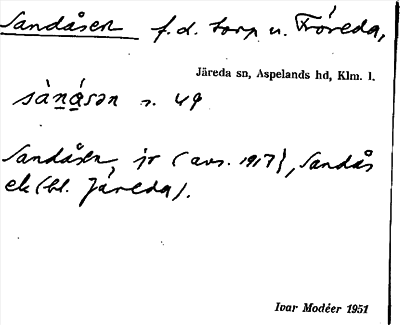 Sandåsen f.d. torp u. Fröreda,
Järeda sn, Aspelands hd, Klm. l.
sànásən n. 49
Sandåsen, jr (avs. 1917), Sandås
ek (bl. Järeda).
Ivar Modéer 1951